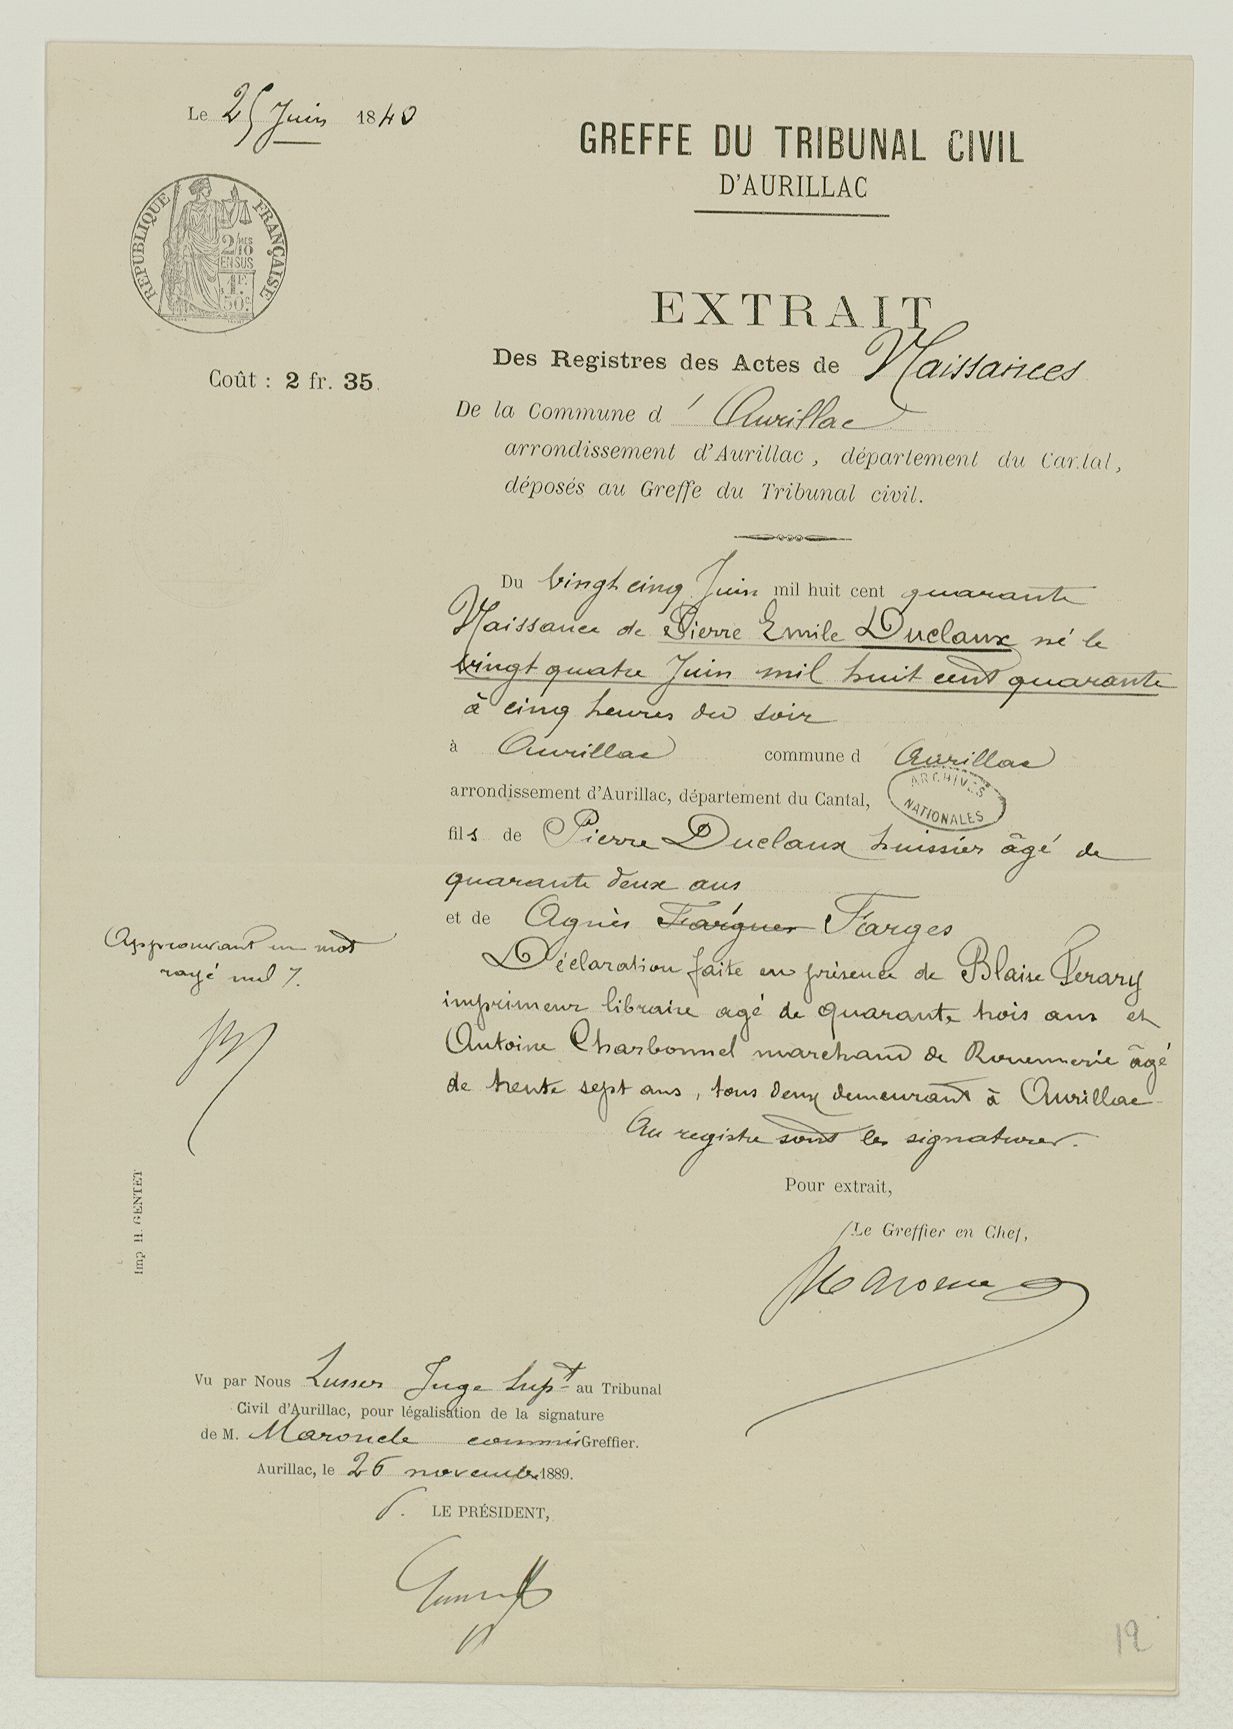 Le 25 Juin 1840
GREFFE DU TRIBUNAL CIVIL
D'AURILLAC
RÉPUBLIQUE FRANÇAISE
2/10 MES
EN SUS
1 F.
50 c
EXTRAIT
Des Registres des Actes de Naissances
Coût : 2 fr. 35.
De la Commune d'Aurillac
arrondissement d'Aurillac, département du Cantal,
déposés au Greffe du Tribunal civil.
Du vingt cinq Juin mil huit cent quarante
Naissance de Pierre Emile Duclaux né le
vingt quatre Juin mil huit cent quarante
à cinq heures du soir
à Aurillac commune d'Aurillac
ARCHIVES
NATIONALES
arrondissement d'Aurillac, département du Cantal,
fils de Pierre Duclaux huissier âgé de
quarante deux ans
et de Agnès Fargues Farges
Approuvant un mot
rayé nul
Déclaration faite en présence de Blaise Ferary
imprimeur libraire agé de quarante trois ans et
Antoine Charbonnel marchand de Rouennerie âgé
de trente sept ans, tous deux demeurant à Aurillac
Au registre sont les signatures.
Pour extrait,
Le Greffier en Chef,
Imp H. GENTET
Vu par Nous Lusser Juge Supt au Tribunal
Civil d'Aurillac, pour légalisation de la signature
de M. Maroncle commis Greffier.
Aurillac, le 26 novembre 1889.
P. LE PRÉSIDENT,
12